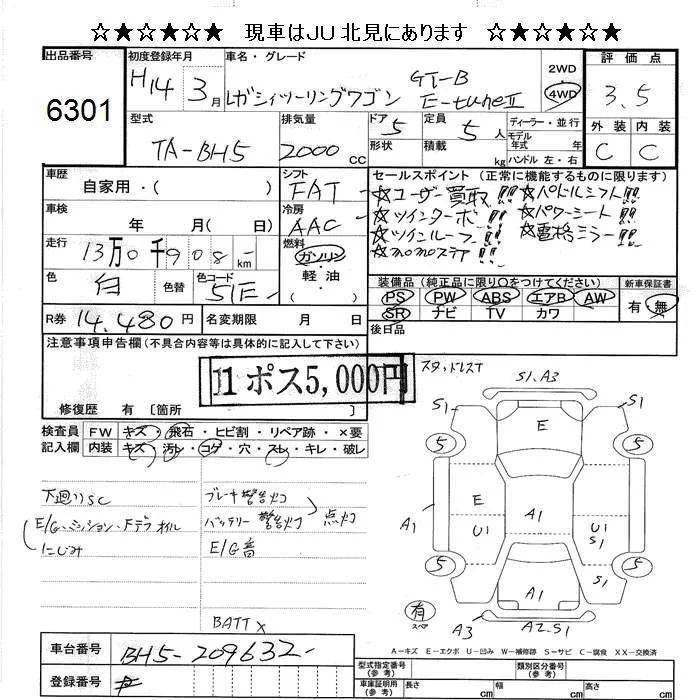 ☆★☆★☆★ 現車はJU北見にあります ☆★☆★☆★
出品番号 6301
初度登録年月 H14 年 3月
車名・グレード レガシィツーリングワゴン GT-B E-tuneⅡ
2WD 4WD
評価点 3.5
外装 内装
C C
型式 TA-BH5
排気量 2000cc
ドア 5 形状
定員 5人 積載 kg
ディーラー・並行
モデル年式
ハンドル 左・右
車歴 自家用・( )
シフト FAT
車検 年 月( 日)
冷房 AAC
走行 13万0千908km
燃料 ガソリン 軽油
色 白 色替
色コード 51E
R券 14.480円
名変期限 月 日
セールスポイント (正常に機能するものに限ります)
☆ユーザー買取!! ☆パドルシフト!!
☆ツインターボ!! ☆パワーシート!!
☆ツインルーフ!! ☆電格ミラー!!
☆momoステア!!
装備品(純正品に限り○をつけてください) 新車保証書
PS PW ABS エアB AW 有 無
SR ナビ TV カワ
後日品
注意事項申告欄(不具合内容等は具体的に記入して下さい)
11 ポス5,000円
修復歴 有 [箇所 ]
検査員記入欄
FW キズ・飛石・ヒビ割・リペア跡・×要
内装 キズ・汚レ・コゲ・穴・スレ・キレ・破レ
下廻りSC
E/G・ミッション・Fデフオイル
にじみ
ブレーキ警告灯
バッテリー警告灯 点灯
E/G音
BATT×
スタッドレスT
S1.A3
S1 S1
5 5
E
E
A1 U1 A1 U1 A1
S1
5 5
S1
A1
有 スペア
A3 A2.S1
A-キズ E-エクボ U-凹み W-補修跡 S-サビ C-腐食 XX-交換済
車台番号 BH5-209632-
登録番号
型式指定番号(参考) 類別区分番号(参考)
車庫証明用(参考) 長さ cm 幅 cm 高さ cm